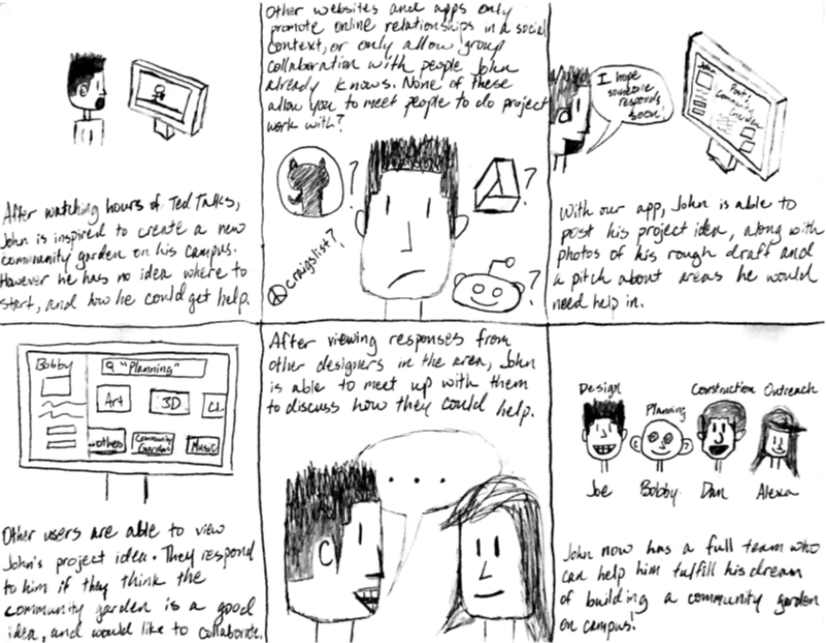 After watching hours of Ted Talks,
John is inspired to create a new
community garden on his campus.
However he has no idea where to
start, and how he could get help.
Other websites and apps only
promote online relationships in a social
context, or only allow group
collaboration with people John
already knows. None of these
allow you to meet people to do project
work with?
?
?
craigslist?
?
I hope
someone
responds
soon!
John
Post:
Community
Garden
With our app, John is able to
post his project idea, along with
photos of his rough draft and
a pitch about areas he would
need help in.
Bobby
"Planning"
Art
3D
Cl
othes
Community
Garden
Music
Other users are able to view
John's project idea. They respond
to him if they think the
community garden is a good
idea, and would like to collaborate.
After viewing responses from
other designers in the area, John
is able to meet up with them
to discuss how they could help.
...
Design
Planning
Construction
Outreach
Joe
Bobby
Dan
Alexa
John now has a full team who
can help him fulfill his dream
of building a community garden
on campus!